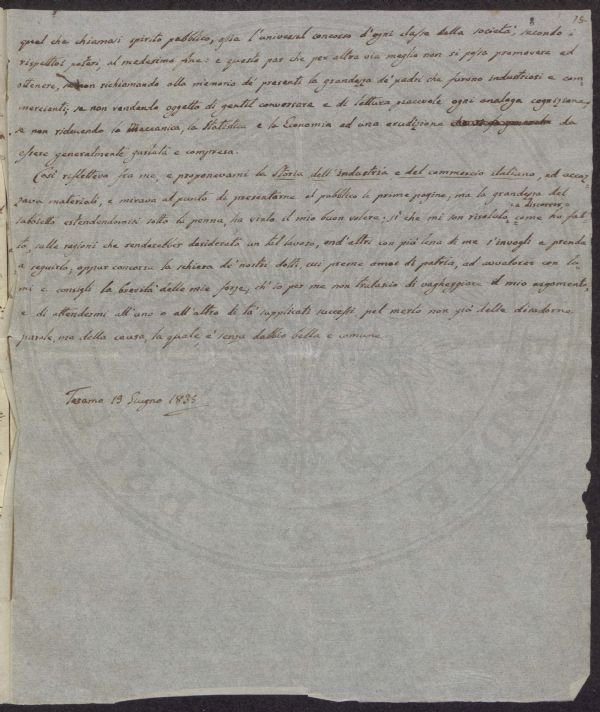 8 75
quel che chiamasi spirito pubblico, ossia l'universal concorso d'ogni classe della società, secondo i
rispettivi poteri, al medesimo fine: e questo par che per altra via meglio non si possa promovere ed
ottenere, se non richiamando alla memoria de' presenti la grandezza de' padri che furono industriosi e com-
mercianti; se non rendendo oggetto di gentil conversare e di lettura piacevole ogni analoga cognizione,
se non riducendo la Meccanica, la Statistica e la Economia ad una erudizione da
essere generalmente gustata e compresa.
Così rifletteva fra me, e proponevami la Storia dell'industria e del commercio italiano, ed accoz-
zava materiali, e mirava al punto di presentarne al pubblico le prime pagine; ma la grandezza del
subbietto estendendomisi sotto la penna, ha vinto il mio buon volere; sì che mi son risoluto a discorrer, come ho fat-
to, sulle ragioni che renderebber desiderato un tal lavoro, ond'altri con più lena di me s'invogli e prenda
a seguirlo, oppur concorra la schiera de' nostri dotti, cui preme amor di patria, ad avvalorar con lu-
mi e consigli la pochità delle mie forze; ch'io per me non tralascio di vagheggiare il mio argomento,
e di attendermi all'uno o all'altro di tai supplicati successi pel merto non già delle disadorne
parole, ma della causa, la quale è senza dubbio bella e comune.
Teramo 19 Giugno 1835